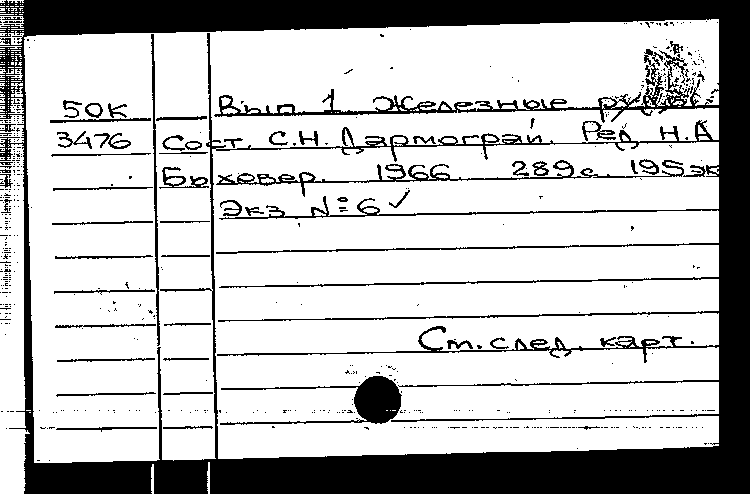 50К Вып 1 Железные руды
3476 Сост. С.Н. Дармограй. Ред. Н.А
Быховер. 1966 289с. 195эк
Экз №6 ✓
См. след. карт.